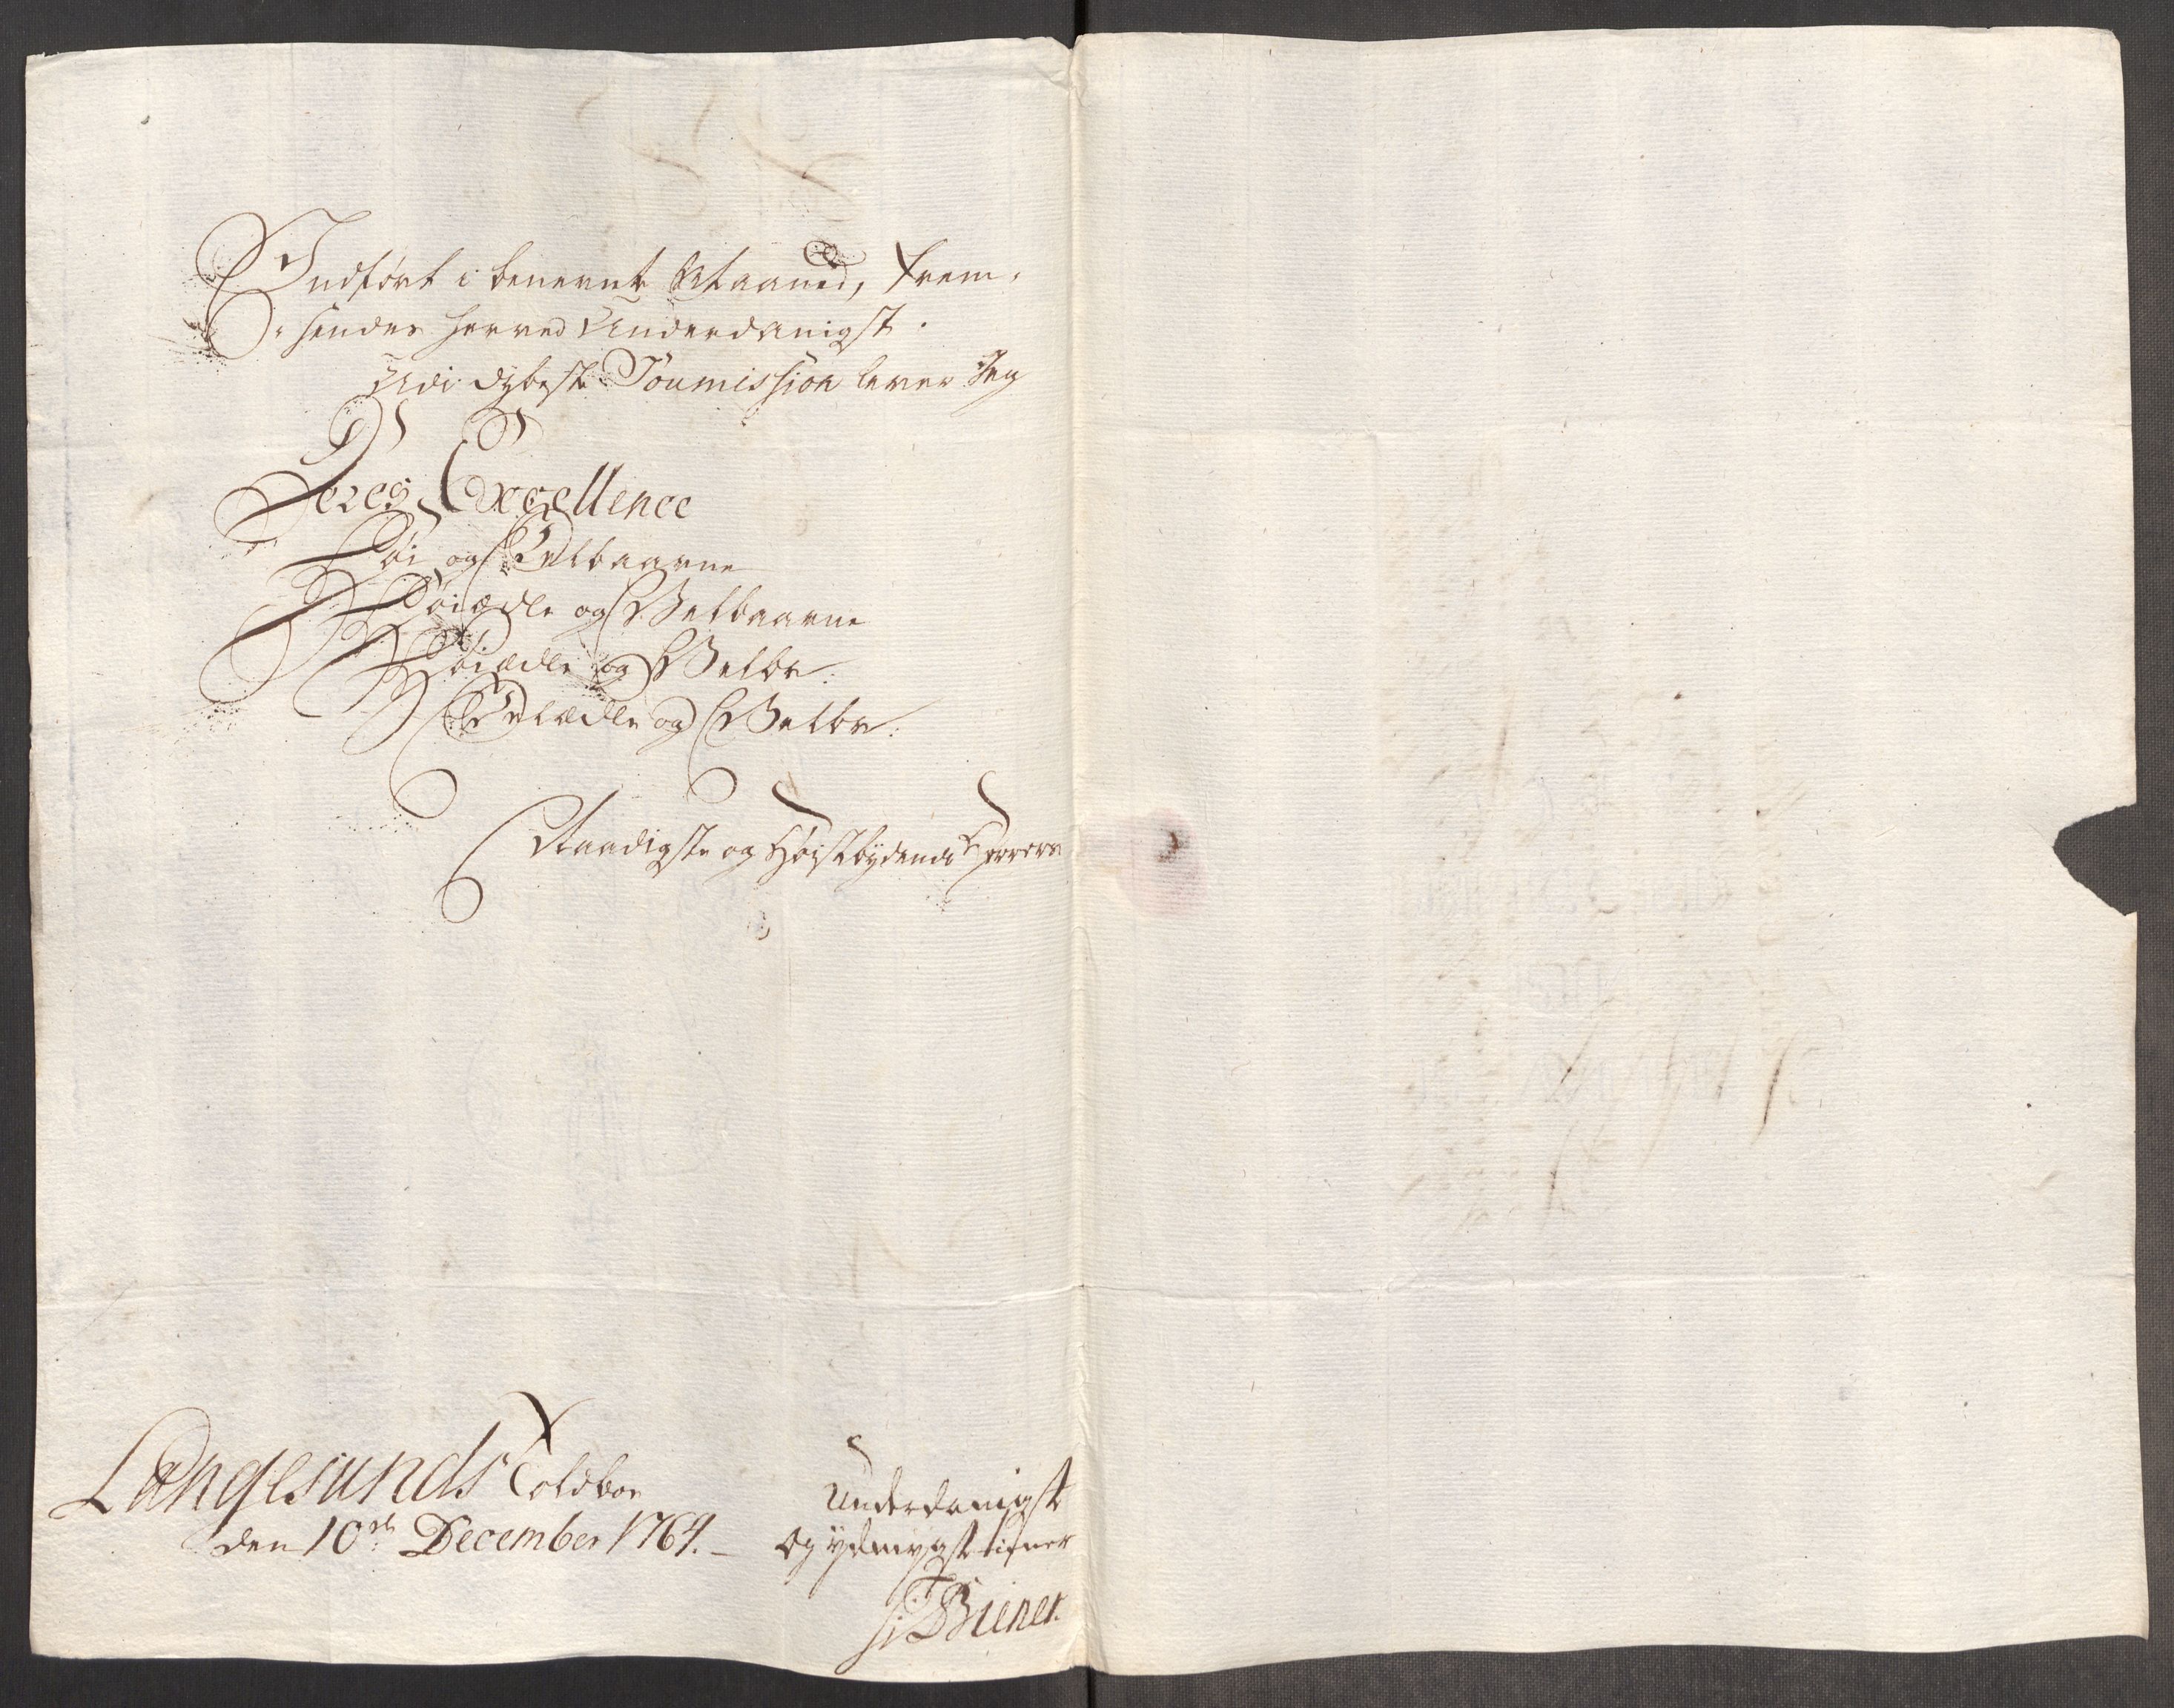 Indført i benevnte Maaned, frem-
sendes herved Underdanigst.
Udi dybeste Soumission lever Jeg
Deres Excellence
Høi og Velbaarne
Høiædle og Velbaarne
Høiædle og Velbr:
Velædle og Velbr:
Naadigste og Høistbydende Herrers
Langesunds Toldbod
den 10de December 1764.
Underdanigst
og ydmygst tiener
Biener